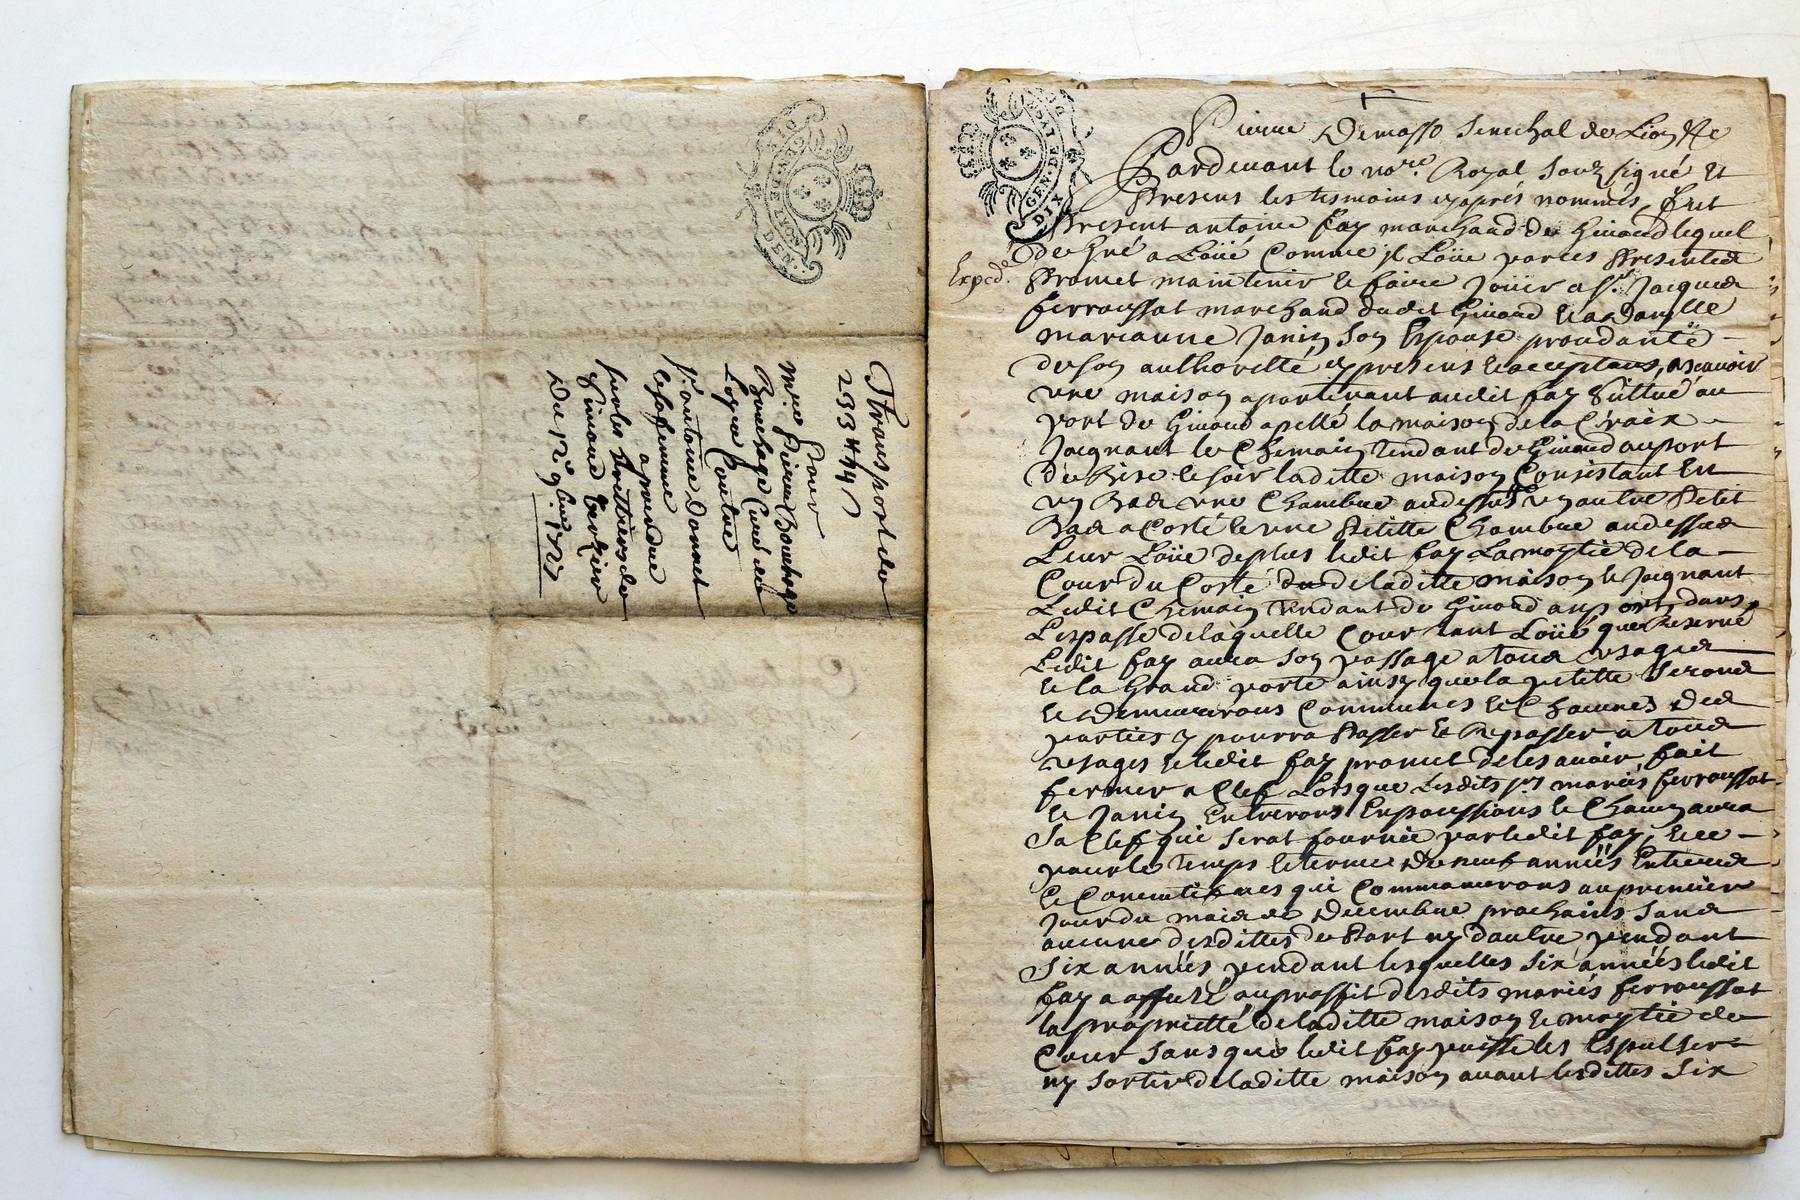 GEN. DE LYON
DIX DEN.
Transport de
233 # 19 s
pour
Mre Pierre Bourbage
Bourbage Curé de
Loyre Contre
Sr antoine Donnet
& sa femme
a prendre
sur les heritiers de
Simond
Du 12e 9bre 1727
GEN. DE LYON
DIX
Pierre Demasso Senechal de Lion &c
Pardevant le nore. Royal Souz signé et
Presens les tesmoins cy aprés nommés, fut
Present antoine fay marchand de Givord lequel
de gré a Loüé Comme il Loüe par ces Presentes
Exped.
Promet maintenir et faire Joüir a Sr. Jacques
ferroussat marchand dudit Givord et a damlle
marianne Janin Son Espouse procedante
de son authoritté cy presens et acceptans, asçavoir
une maison apartenant audit fay Sittué au
port de Givord apellé la maison de la Croix
Joignant le Chemain tendant de Givord au port
de bise et soir laditte maison Consistant En
un Bas une Chambre au dessus un autre Petit
Bas a Costé et une Petitte Chambre au dessus
Leur Loüe deplus ledit fay La moytié de la
Cour du Costé de laditte maison et Joignant
Ledit Chemain tendant de Givord au port, dans
L'espasse de laquelle Cour tant Loüé que Reservé
Ledit fay aura Son passage a tous usages
et la Grand porte ainsy que la petitte Seront
et Demeureront Communes et Chacunes des
parties y pourra Passer et Repasser a tous
usages et ledit fay promet de les avoir fait
fermer a Clef Lorsque Lesdits srs mariés ferroussat
et Janin Entreront En possessions et Chacun aura
Sa Clef qui Serat fournie par ledit fay, et ce
pour le temps et terme de neuf années Entieres
et Consecutives qui Commanceront au premier
Jour du mois de Decembre prochains Sans
aucunes desdittes de Part ny d'autre pendant
Six années pendant lesquelles Six années ledit
fay a affecté au proffit desdits mariés ferroussat
la proprietté de laditte maison et moytié de
Cour Sans que ledit fay puisse les Expulser
ny sortir de laditte maison avant lesdittes Six